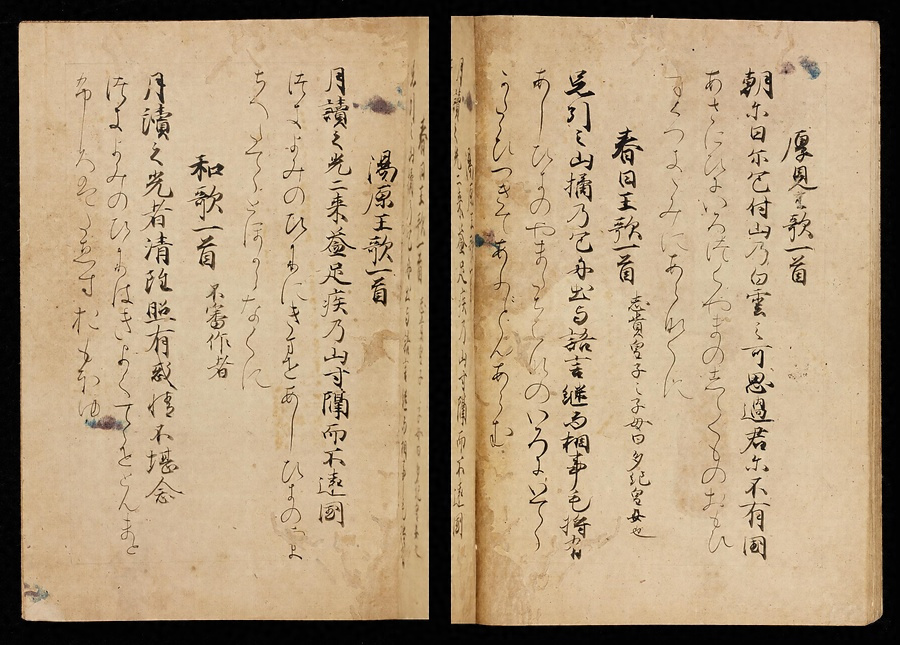 厚見王歌一首
朝尓日尓色付山乃白雲之可思過君尓不有國
あさにひにいろつくやまのしらくものおもひ
すくへきゝみにあらなくに
春日王歌一首 志貴皇子之子母曰多紀皇女也
足引之山橘乃色丹出与語言継而相事毛将有
あしひきのやまたちはなのいろにいてゝ
かたらひつきてあふことあらむ
湯原王歌一首
月讀之光二来益足疾乃山寸隔而不遠國
つきよみのひかりにきませあしひきのやま
をへたてゝとほからなくに
和歌一首 不審作者
月讀之光者清雖照有惑情不堪念
つきよみのひかりはきよくてらせれとまと
おもほゆ